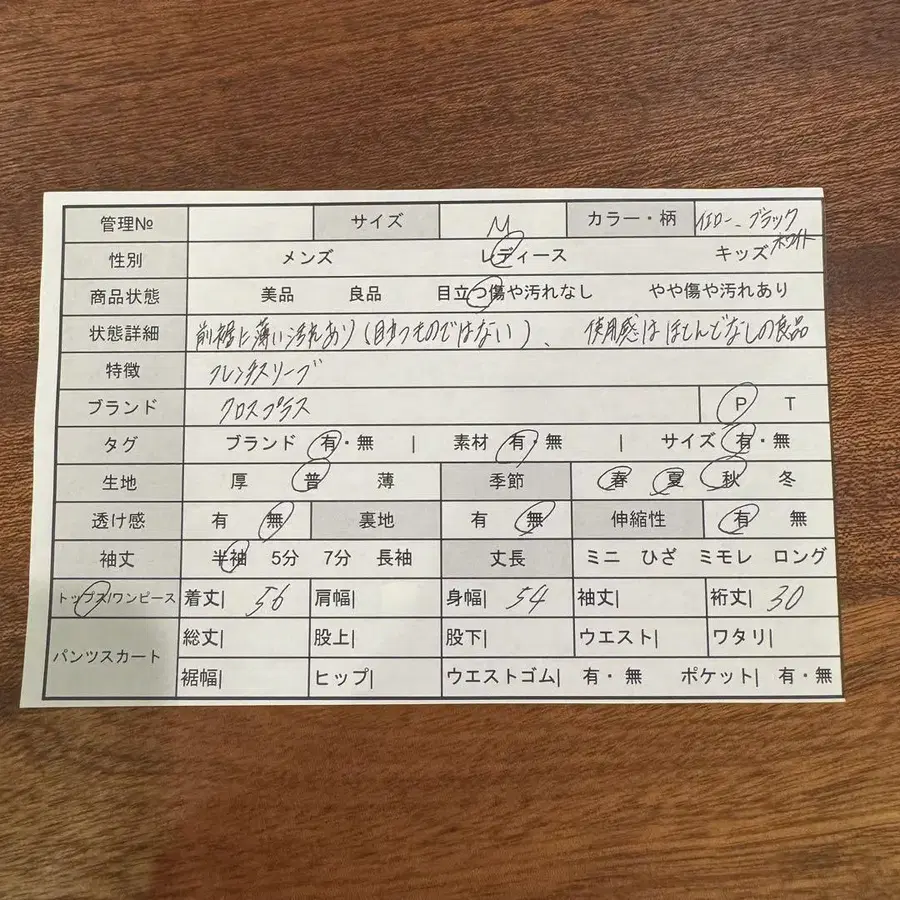 管理№ サイズ M カラー・柄 イエロー、ブラック
ホワイト
性別 メンズ レディース キッズ
商品状態 美品 良品 目立つ傷や汚れなし やや傷や汚れあり
状態詳細 前裾に薄い汚れあり(目立つものではない)、使用感はほとんどなしの良品
特徴 フレンチスリーブ
ブランド クロスプラス P T
タグ ブランド 有・無 | 素材 有・無 | サイズ 有・無
生地 厚 普 薄 季節 春 夏 秋 冬
透け感 有 無 裏地 有 無 伸縮性 有 無
袖丈 半袖 5分 7分 長袖 丈長 ミニ ひざ ミモレ ロング
トップス/ワンピース 着丈| 56 肩幅| 身幅| 54 袖丈| 裄丈| 30
パンツスカート 総丈| 股上| 股下| ウエスト| ワタリ|
裾幅| ヒップ| ウエストゴム| 有・無 ポケット| 有・無